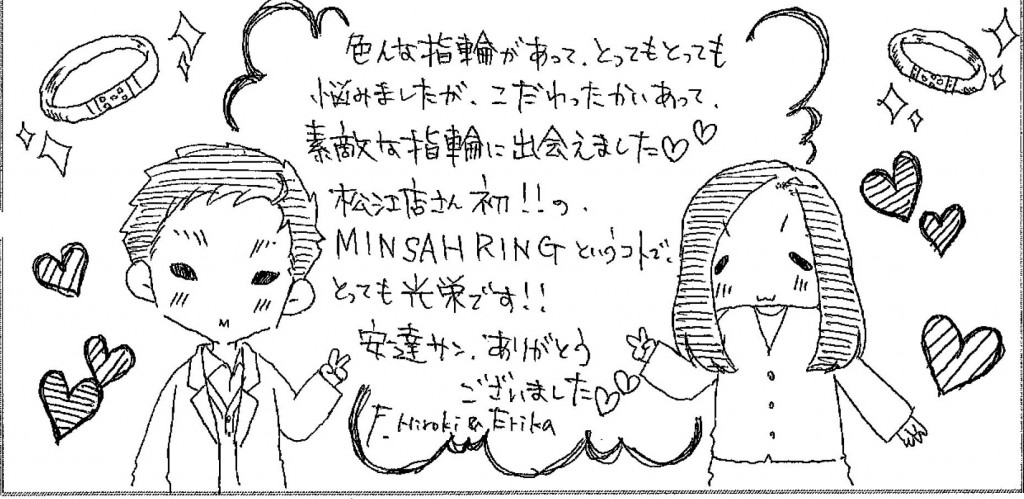 色んな指輪があって、とってもとっても
悩みましたが、こだわったかいあって、
素敵な指輪に出会えました♡♡
松江店さん初!!の、
MINSAH RINGというコトで、
とっても光栄です!!
安達サン、ありがとう
ございました♡♡
F. Hiroki & Erika